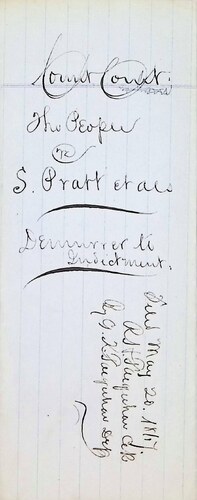 County Court.
The People
vs
S. Pratt et als
Demurrer to
Indictment.
Filed May 20. 1867.
R. H. Farquhar Clk
By G. A. Farquhar Dep